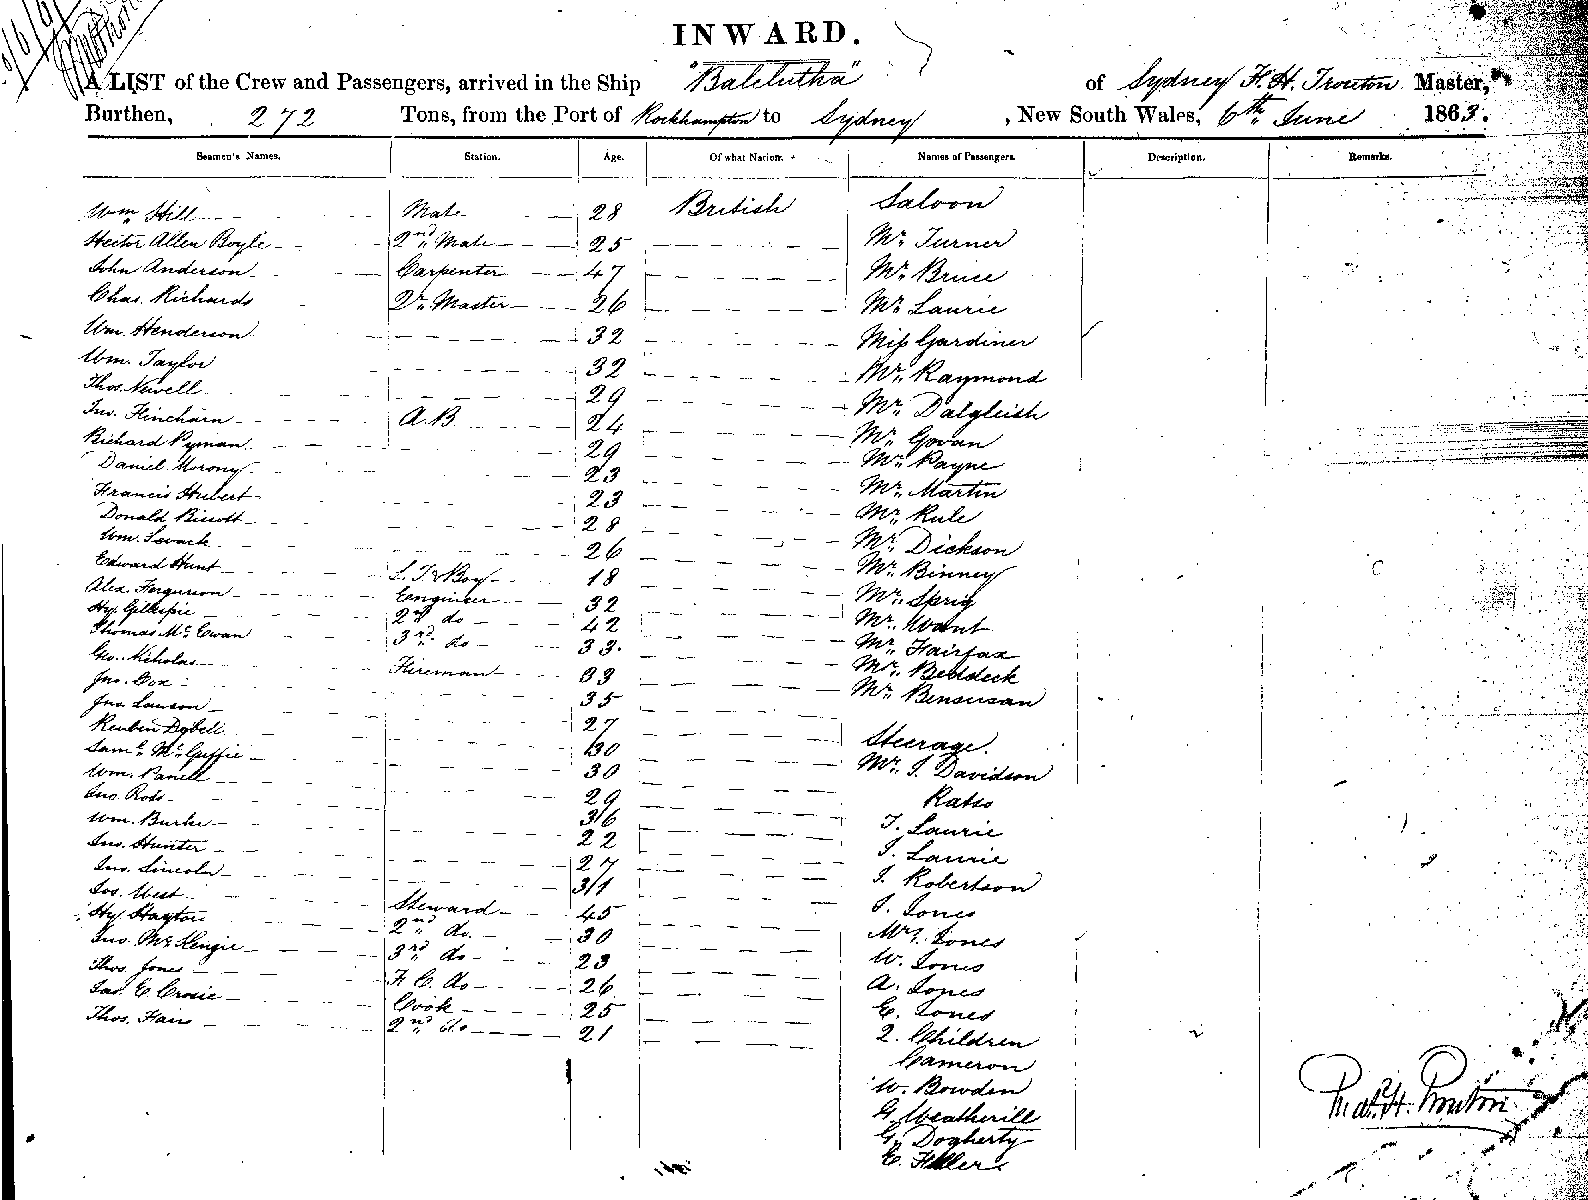 INWARD.
A LIST of the Crew and Passengers, arrived in the Ship "Balclutha" of Sydney F. H. Trouton Master,
Burthen, 272 Tons, from the Port of Rockhampton to Sydney, New South Wales, 6th June 1863.
Seamen's Names. Station. Age. Of what Nation. Names of Passengers. Description. Remarks.
Wm. Hill Mate 28 British Saloon
Hector Allen Boyle 2nd Mate 25 Mr. Turner
John Anderson Carpenter 47 Mr. Bruce
Chas. Richards Qr. Master 26 Mr. Laurie
Wm. Henderson 32 Miss Gardiner
Wm. Taylor 32 Mr. Raymond
Thos. Newell 29 Mr. Dalgleish
Jno. Fincham A.B. 24 Mr. Govan
Richard Pyman 29 Mr. Payne
Daniel Morony 23 Mr. Martin
Francis Hubert 23 Mr. Rule
Donald 28 Mr. Dickson
Wm. 26 Mr. Binney
Edward Hunt L.T. & Boy 18 Mr. Sprig
Alex. Ferguson Engineer 32 Mr. Want
Hy. Gillespie 2nd do 42 Mr. Fairfax
Thomas McEwan 3rd do 33 Mr. Beddeck
Geo. Nicholas Fireman 33 Mr. Bensusan
Jno. Cox 35
Jno. Lawson 27 Steerage.
Reuben 30 Mr. J. Davidson
Saml. McGuffie 30 Ratso
Wm. 29 T. Laurie
Jno. Ross 36 J. Laurie
Wm. Burke 22 J. Robertson
Jno. Hunter 27 J. Jones
Jno. Lincoln 31 Mrs. Jones
Jos. West Steward 45 W. Jones
Hy. Hayton 2nd do. 30 A. Jones
Jno. McKenzie 3rd do 23 E. Jones
Thos. Jones F.C. do 26 2. Children
Jas. E. Crosie Cook 25 Cameron
Thos. Hair 2nd do 21 W. Bowden
G. Weatherill
G. Dogherty
E.
Fredk. H. Trouton